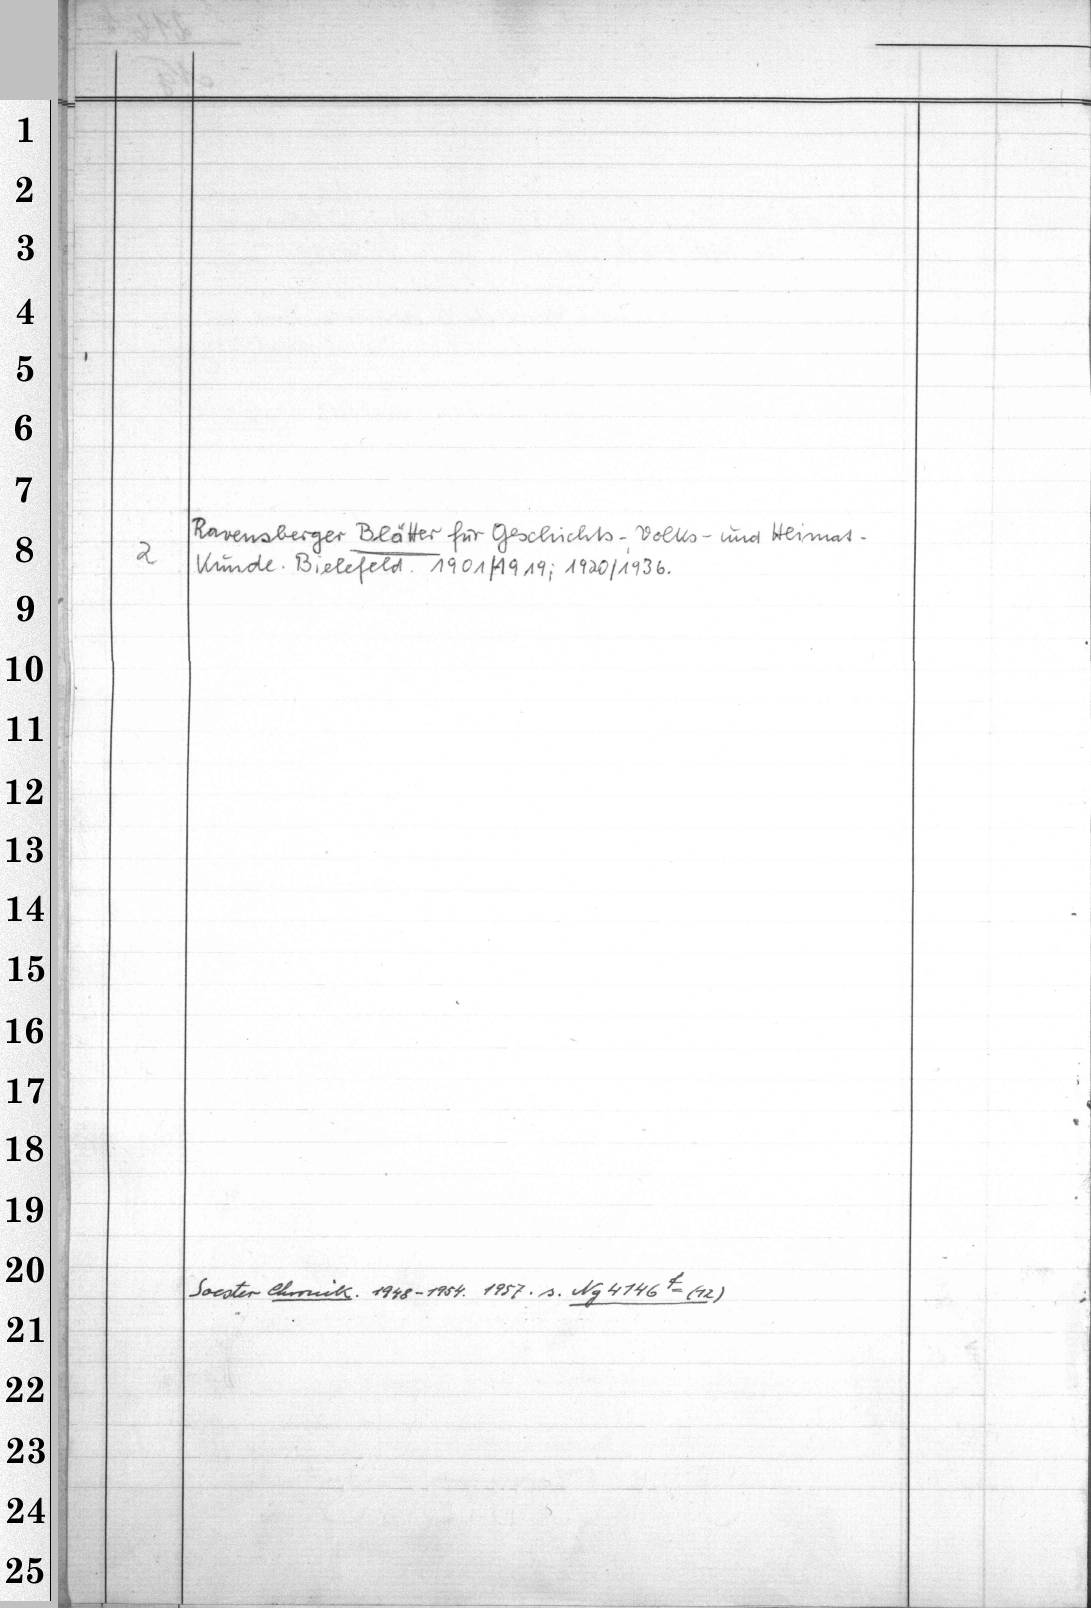 1
2
3
4
5
6
7
Ravensberger Blätter für Geschichts-, Volks- und Heimat-
8
2
Kunde. Bielefeld. 1901/1919; 1920/1936.
9
10
11
12
13
14
15
16
17
18
19
20
Soester Chronik. 1948-1954. 1957. s. Ng 4146 f= (12)
21
22
23
24
25